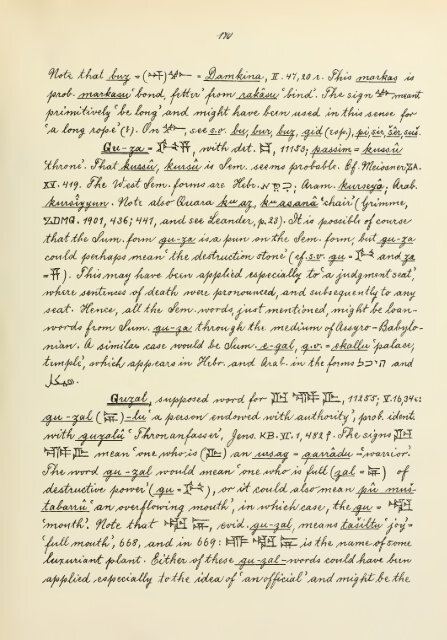 Note that buz = (𒀭)𒁍 = Damkina, II. 47,20 r. This markas is
prob. markasu 'bond, fetter' from rakâsu 'bind'. The sign 𒁍 meant
primitively 'be long' and might have been used in this sense for
'a long rope' (?). On 𒁍, see s.v. bu, bur, buz, gid (esp.), pi, sir, šer, suš.
Gu-za = , with det. , 11153; passim = kussû
'throne'. That kussû, kursû is Sem. seems probable. Cf. Meissner, ZA.
XV. 419. The West Sem. forms are Hebr. ; Aram. kurseyâ; Arab.
kursîyyun. Note also Quara kuaz, kuasanâ 'chair' (Grimme,
ZDMG. 1901, 436; 441, and see Leander, p. 23). It is possible of course
that the Sum. form gu-za is a pun on the Sem. form, but gu-za
could perhaps mean 'the destruction stone' (cf. s.v. gu = and za
= 𒍝). This may have been applied especially to 'a judgment seat',
where sentences of death were pronounced, and subsequently to any
seat. Hence, all the Sem. words, just mentioned, might be loan-
words from Sum. gu-za through the medium of Assyro-Babylo-
nian. A similar case would be Sum. e-gal, q.v. = ekallu 'palace,
temple', which appears in Hebr. and Arab. in the forms היכל and
هيكل.
Guzal, supposed word for , 11255; V. 16,34c:
gu-zal ()-lu 'a person endowed with authority', prob. ident.
with guzalû 'Thronanfasser', Jens. KB. VI. 1, 482 f. The signs
mean 'one who is () an ursag = qarrâdu = 'warrior'.
The word gu-zal would mean 'one who is full (zal = ) of
destructive power' (gu = ), or it could also mean pû muš-
tabarrû 'an overflowing mouth', in which case, the gu =
'mouth'. Note that , evid. gu-zal, means tašiltu 'joy' =
'full mouth', 668, and in 669: is the name of some
luxuriant plant. Either of these gu-zal-words could have been
applied especially to the idea of 'an official' and might be the